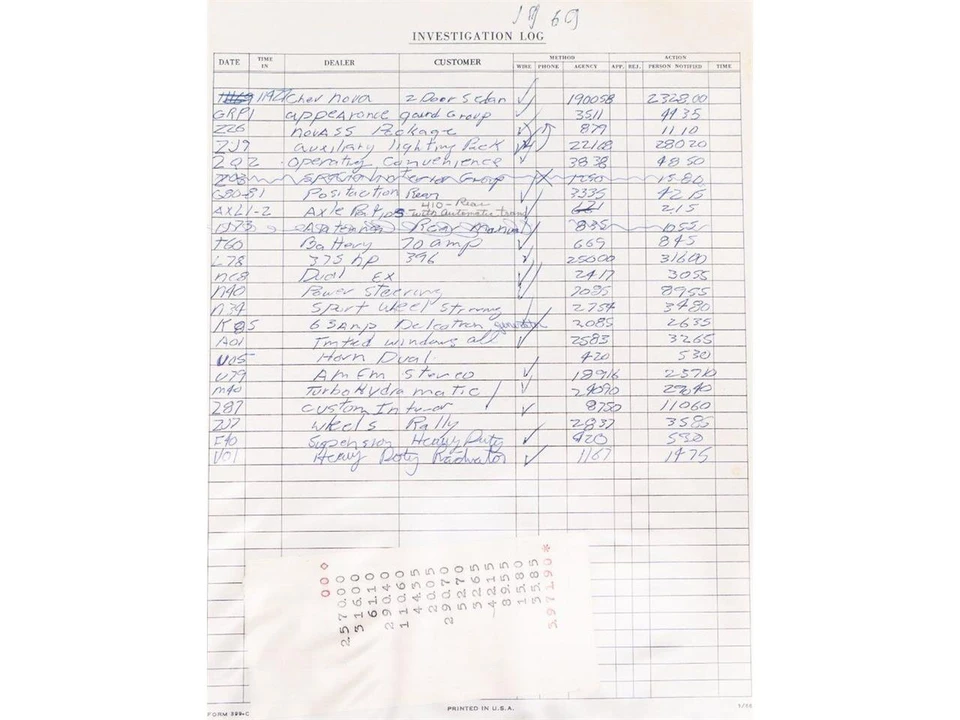 1969
INVESTIGATION LOG
DATE TIME IN DEALER CUSTOMER METHOD ACTION
WIRE PHONE AGENCY APP. REJ. PERSON NOTIFIED TIME
11427 Chev Nova 2 Door Sedan 190058 2328.00
GRP1 appearance gaurd Group 3511 4435
Z26 Nova SS Package 879 1110
ZJ9 auxiliary lighting Pack 22168 28020
ZQ2 Operating Convenience 3838 4850
Z93 Group 1250 1580
G80-81 Positraction Rear 3335 4215
AXL1-2 Axle Ratios 410-Rear with automatic trans 215
Rear manual 835 1055
T60 Battery 70 amp 669 845
L78 375 hp 396 25000 31600
NC8 Dual Ex 2417 3055
N40 Power Steering 7085 8955
N34 Sport Wheel Strring 2754 3480
K85 63 Amp Delcotron generator 2085 2635
A01 Tinted windows all 2583 3265
U05 Horn Dual 420 530
U79 Am Fm Stereo 18916 23710
M40 Turbo Hydra matic 29040
Z87 Custom Interur 8750 11060
ZJ7 Wheels Rally 2837 3585
F40 Suspension Heavy Duty 420 530
V01 Heavy Duty Radiator 1167 1475
000
2570.00
316.00
61.10
290.40
110.60
44.35
20.05
290.70
52.70
32.65
42.15
89.55
15.80
35.85
3,971.90 *
FORM 299-C
PRINTED IN U.S.A.